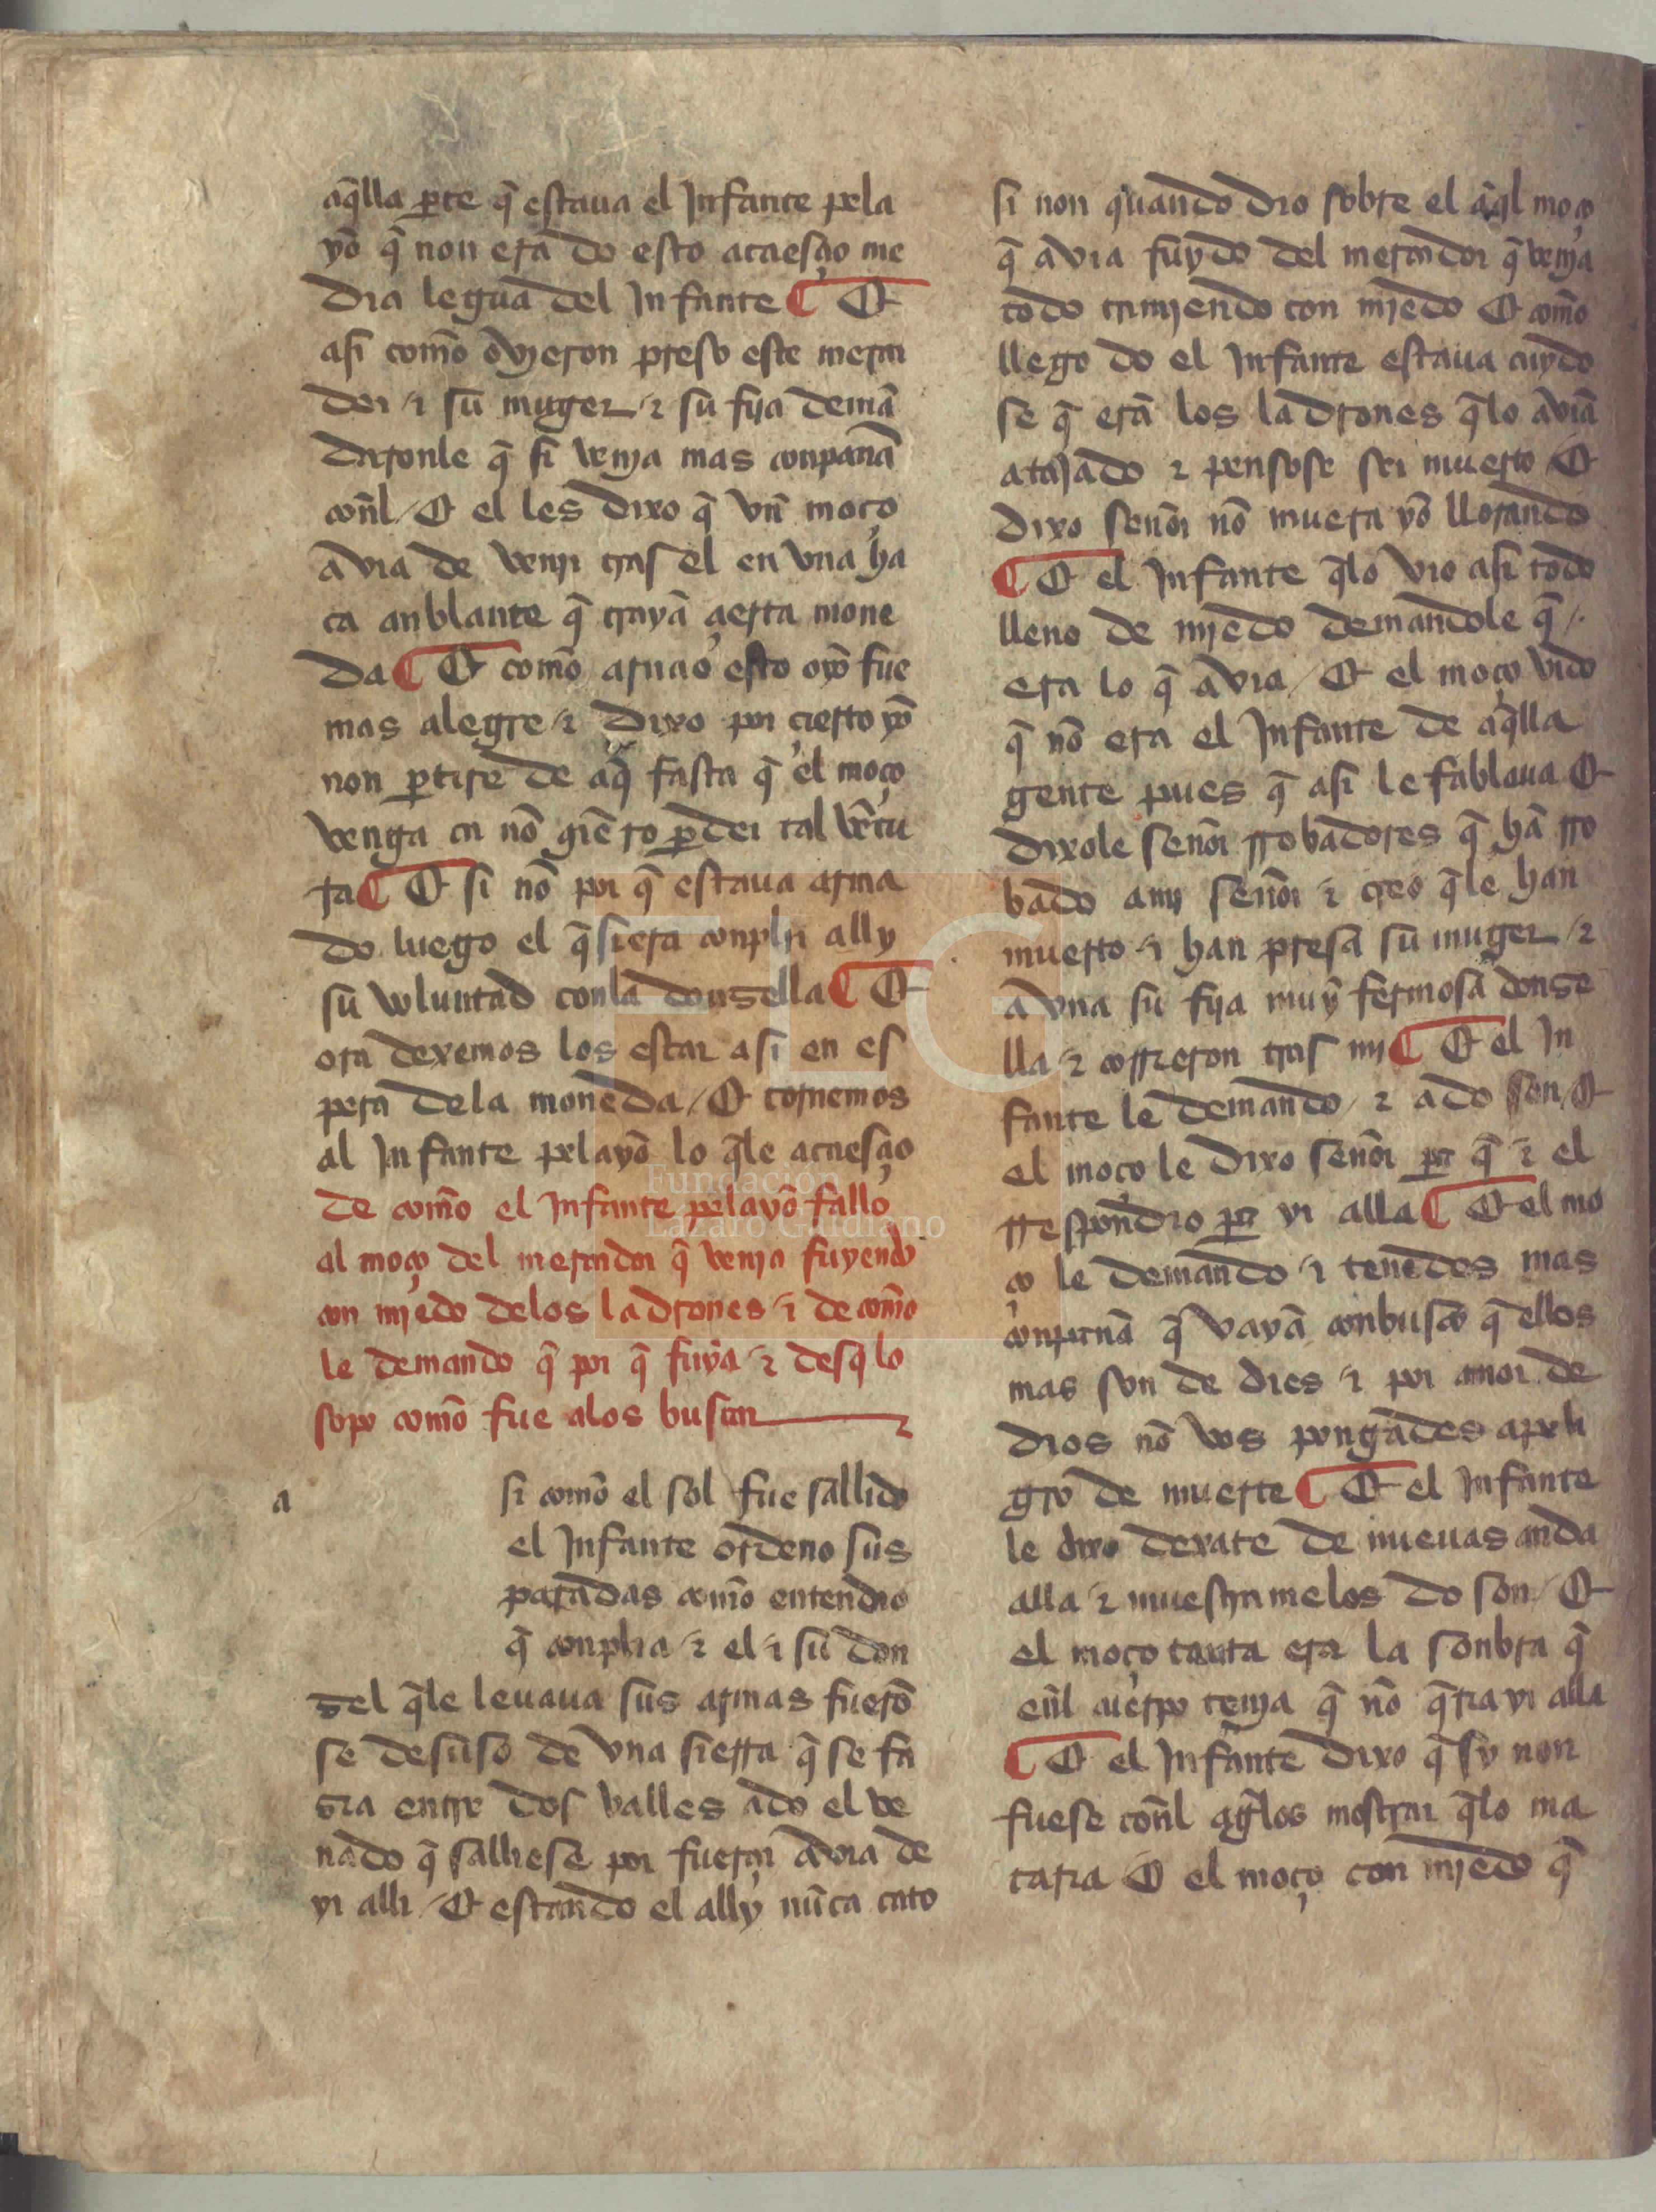 aq̃lla ꝑte q̃ estaua el Infante pela
yõ q̃ non era do esto acaesçio me
dia legua del Infante ¶ Et
asi comõ ovieron preso este merca
dor ⁊ su muger ⁊ su fija demã
daronle q̃ si venia mas conpanã
coñl / Et el les dixo q̃ vñ moço
avia de venir tras el en vna ha
ca anblante q̃ trayã çierta mone
da ¶ Et comõ arnao esto oyo fue
mas alegre ⁊ dixo por çierto yõ
non ꝑtire de aq̃ fasta q̃ el moço
venga ca nõ q̃ero ꝑder tal vẽtu
ra ¶ Et si nõ por q̃ estaua arma
do luego el q̃siera conplir ally
su voluntad conla donsella ¶ Et
ora dexemos los estar asi en es
pera dela moneda / Et tornemos
al Infante pelayõ lo q̃le acaesçio
de comõ el Infante pelayõ fallo
al moço del mercador q̃ venia fuyendo
con miedo delos ladrones ⁊ de comõ
le demando q̃ por q̃ fuya ⁊ desq̃ lo
sopo comõ fue alos buscar
a
si comõ el sol fue sallido
el Infante ordeno sus
paradas comõ entendio
q̃ conplia ⁊ el ⁊ su don
zel q̃le leuaua sus armas fuerõ
se desuso de vna sierra q̃ se fa
zia entre dos valles ado el ve
nado q̃ salliese por fuerça avia de
yr alli / Et estando el ally nũca cato
si non quando dio sobre el aq̃l moço
q̃ avia fuydo del mercador q̃ venia
todo tremiendo con miedo Et comõ
llego do el Infante estaua cuydo
se q̃ erã los ladrones q̃lo aviã
atajado ⁊ pensose ser muerto Et
dixo señor nõ muera yõ llorando
¶ Et el Infante q̃lo vio asi todo
lleno de miedo demandole q̃ /
era lo q̃ avia / Et el moço vido
q̃ nõ era el Infante de aq̃lla
gente pues q̃ asi le fablaua Et
dixole señor rrobadores q̃ hã rro
bado ami señor ⁊ creo q̃le han
muerto ⁊ han presa su muger ⁊
a vna su fija muy fermosa donse
lla ⁊ corrieron tras mi ¶ Et el In
fante le demando / ⁊ ado son / Et
el moço le dixo señor ꝑa q̃ ⁊ el
rrespondio ꝑa yr alla ¶ Et el mo
ço le demando ⁊ tenedes mas
conpanã q̃ vayã conbusco q̃ ellos
mas son de dies ⁊ por amor de
dios nõ vos pongades apeli
gro de muerte ¶ Et el Infante
le dixo dexate de nueuas anda
alla ⁊ muestramelos do son / Et
el moço tanta era la sonbra q̃
en̂l cuerpo tenia q̃ nõ q̃ria yr alla
¶ Et el Infante dixo q̃ sy non
fuese con̂l agelos mostrar q̃lo ma
taria Et el moço con miedo q̃
Fundación
Lázaro Galdiano
FLG